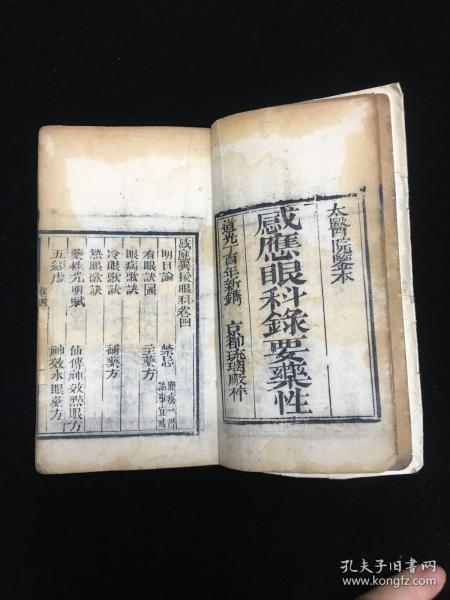 太醫院鑒本
感應眼科錄要藥性
道光 年新鐫 京都琉璃廠梓
眼科卷四
明目論 禁忌
看眼訣圖 主藥方
眼病歌訣
冷眼歌訣 補藥方
熱眼歌訣
藥性光明賦 仙傳神效點眼方
五 神效水眼藥方
孔夫子旧书网
www.kongfz.com